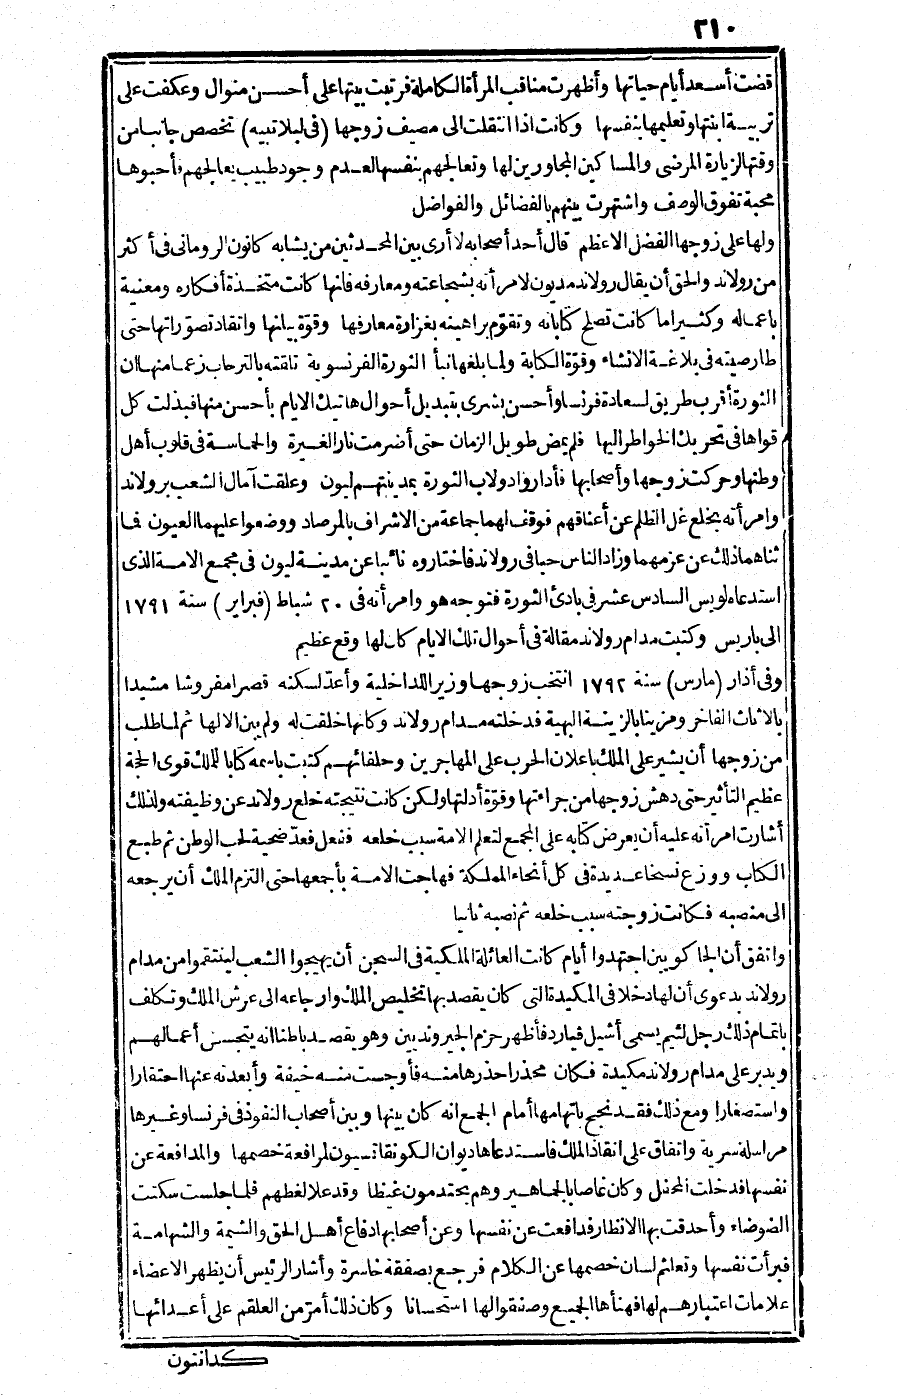 ٢١٠
قضت أسعد أيام حياتها وأظهرت مناقب المرأة الكاملة فرتبت بيتها على أحسن منوال وعكفت على
تربية ابنتها وتعليمها بنفسها وكانت اذا انتقلت الى مصيف زوجها (فى ليلاتييه) تخصص جانبا من
وقتها لزيارة المرضى والمساكين المجاورين لها وتعالجهم بنفسها لعدم وجود طبيب يعالجهم فأحبوها
محبة تفوق الوصف واشتهرت بينهم بالفضائل والفواضل
ولها على زوجها الفضل الاعظم قال أحد أصحابه لا أرى بين المحدثين من يشابه كانون الرومانى فى أكثر
من رولاند والحق أن يقال رولاند مديون لامرأته بشجاعته ومعارفه فانها كانت متخذة أفكاره ومعنية
باعماله وكثيرا ما كانت تصلح كتاباته وتقوم براهينه بغزارة معارفها وقوة بيانها واتقاد تصوراتها حتى
طار صيته فى بلاغة الانشاء وقوة الكتابة ولما بلغها نبأ الثورة الفرنسوية تلقته بالترحاب زعما منها ان
الثورة أقرب طريق لسعادة فرنسا وأحسن بشرى بتبديل أحوال هاتيك الايام بأحسن منها فبذلت كل
قواها فى تحريك الخواطر اليها فلم يمض طويل الزمان حتى أضرمت نار الغيرة والحماسة فى قلوب أهل
وطنها وحركت زوجها وأصحابها فأداروا دولاب الثورة بمدينتهم ليون وعلقت آمال الشعب برولاند
وامرأته بخلع غل الظلم عن أعناقهم فوقف لهما جماعة من الاشراف بالمرصاد ووضعوا عليهما العيون فما
ثناهما ذلك عن عزمهما وزاد الناس حبا فى رولاند فاختاروه نائبا عن مدينة ليون فى مجمع الامة الذى
استدعاه لويس السادس عشر فى بادئ الثورة فتوجه هو وامرأته فى ٢٠ شباط (فبراير) سنة ١٧٩١
الى باريس وكتبت مدام رولاند مقالة فى أحوال تلك الايام كان لها وقع عظيم
وفى أذار (مارس) سنة ١٧٩٢ انتخب زوجها وزير اللداخلية وأعد لسكنه قصرا مفروشا مشيدا
بالاثاث الفاخر ومزينا بالزينة البهية فدخلته مدام رولاند وكأنها خلقت له ولم يبن الا لها ثم لما طلب
من زوجها أن يشير على الملك باعلان الحرب على المهاجرين وحلفائهم كتبت باسمه كتابا للملك قوى الحجة
عظيم التأثير حتى دهش زوجها من جراءتها وقوة أدلتها ولكن كانت نتيجته خلع رولاند عن وظيفته ولذلك
أشارت امرأته عليه أن يعرض كتابه على المجمع لتعلم الامة سبب خلعه ففعل فعد ضحية لحب الوطن ثم طبع
الكتاب ووزع نسخا عديدة فى كل أنحاء المملكة فهاجت الامة بأجمعها حتى التزم الملك أن يرجعه
الى منصبه فكانت زوجته سبب خلعه ثم نصبه ثانيا
واتفق أن الجاكوبين اجتهدوا أيام كانت العائلة الملكية فى السجن أن يهيجوا الشعب لينتقموا من مدام
رولاند بدعوى أن لها دخلا فى المكيدة التى كان يقصد بها تخليص الملك وارجاعه الى عرش الملك وتكلف
باتمام ذلك رجل لئيم يسمى أشيل فيارد فأظهر حزم الجيرونديين وهو يقصد باطنا انه يتجسس أعمالهم
ويدبر على مدام رولاند مكيدة فكان محذرا حذرها منه فأوجست منه خيفة وأبعدته عنها احتقارا
واستصغارا ومع ذلك فقد نجح باتهامها أمام المجمع انه كان بينها وبين أصحاب النفوذ فى فرنسا وغيرها
مراسلة سرية واتفاق على انقاذ الملك فاستدعاها ديوان الكونفانسيون لمرافعة خصمها والمدافعة عن
نفسها فدخلت المحفل وكان غاصا بالجماهير وهم يحتدمون غيظا وقد علا لغطهم فلما جلست سكتت
الضوضاء وأحدقت بها الانظار فدافعت عن نفسها وعن أصحابها دفاع أهل الحق والشيمة والشهامة
فبرأت نفسها وتعلثم لسان خصمها عن الكلام فرجع بصفقة خاسرة وأشار الرئيس أن يظهر الاعضاء
علامات اعتبارهم لها فهنأها الجميع وصفقوا لها استحسانا وكان ذلك أمر من العلقم على أعدائها
كدانتون